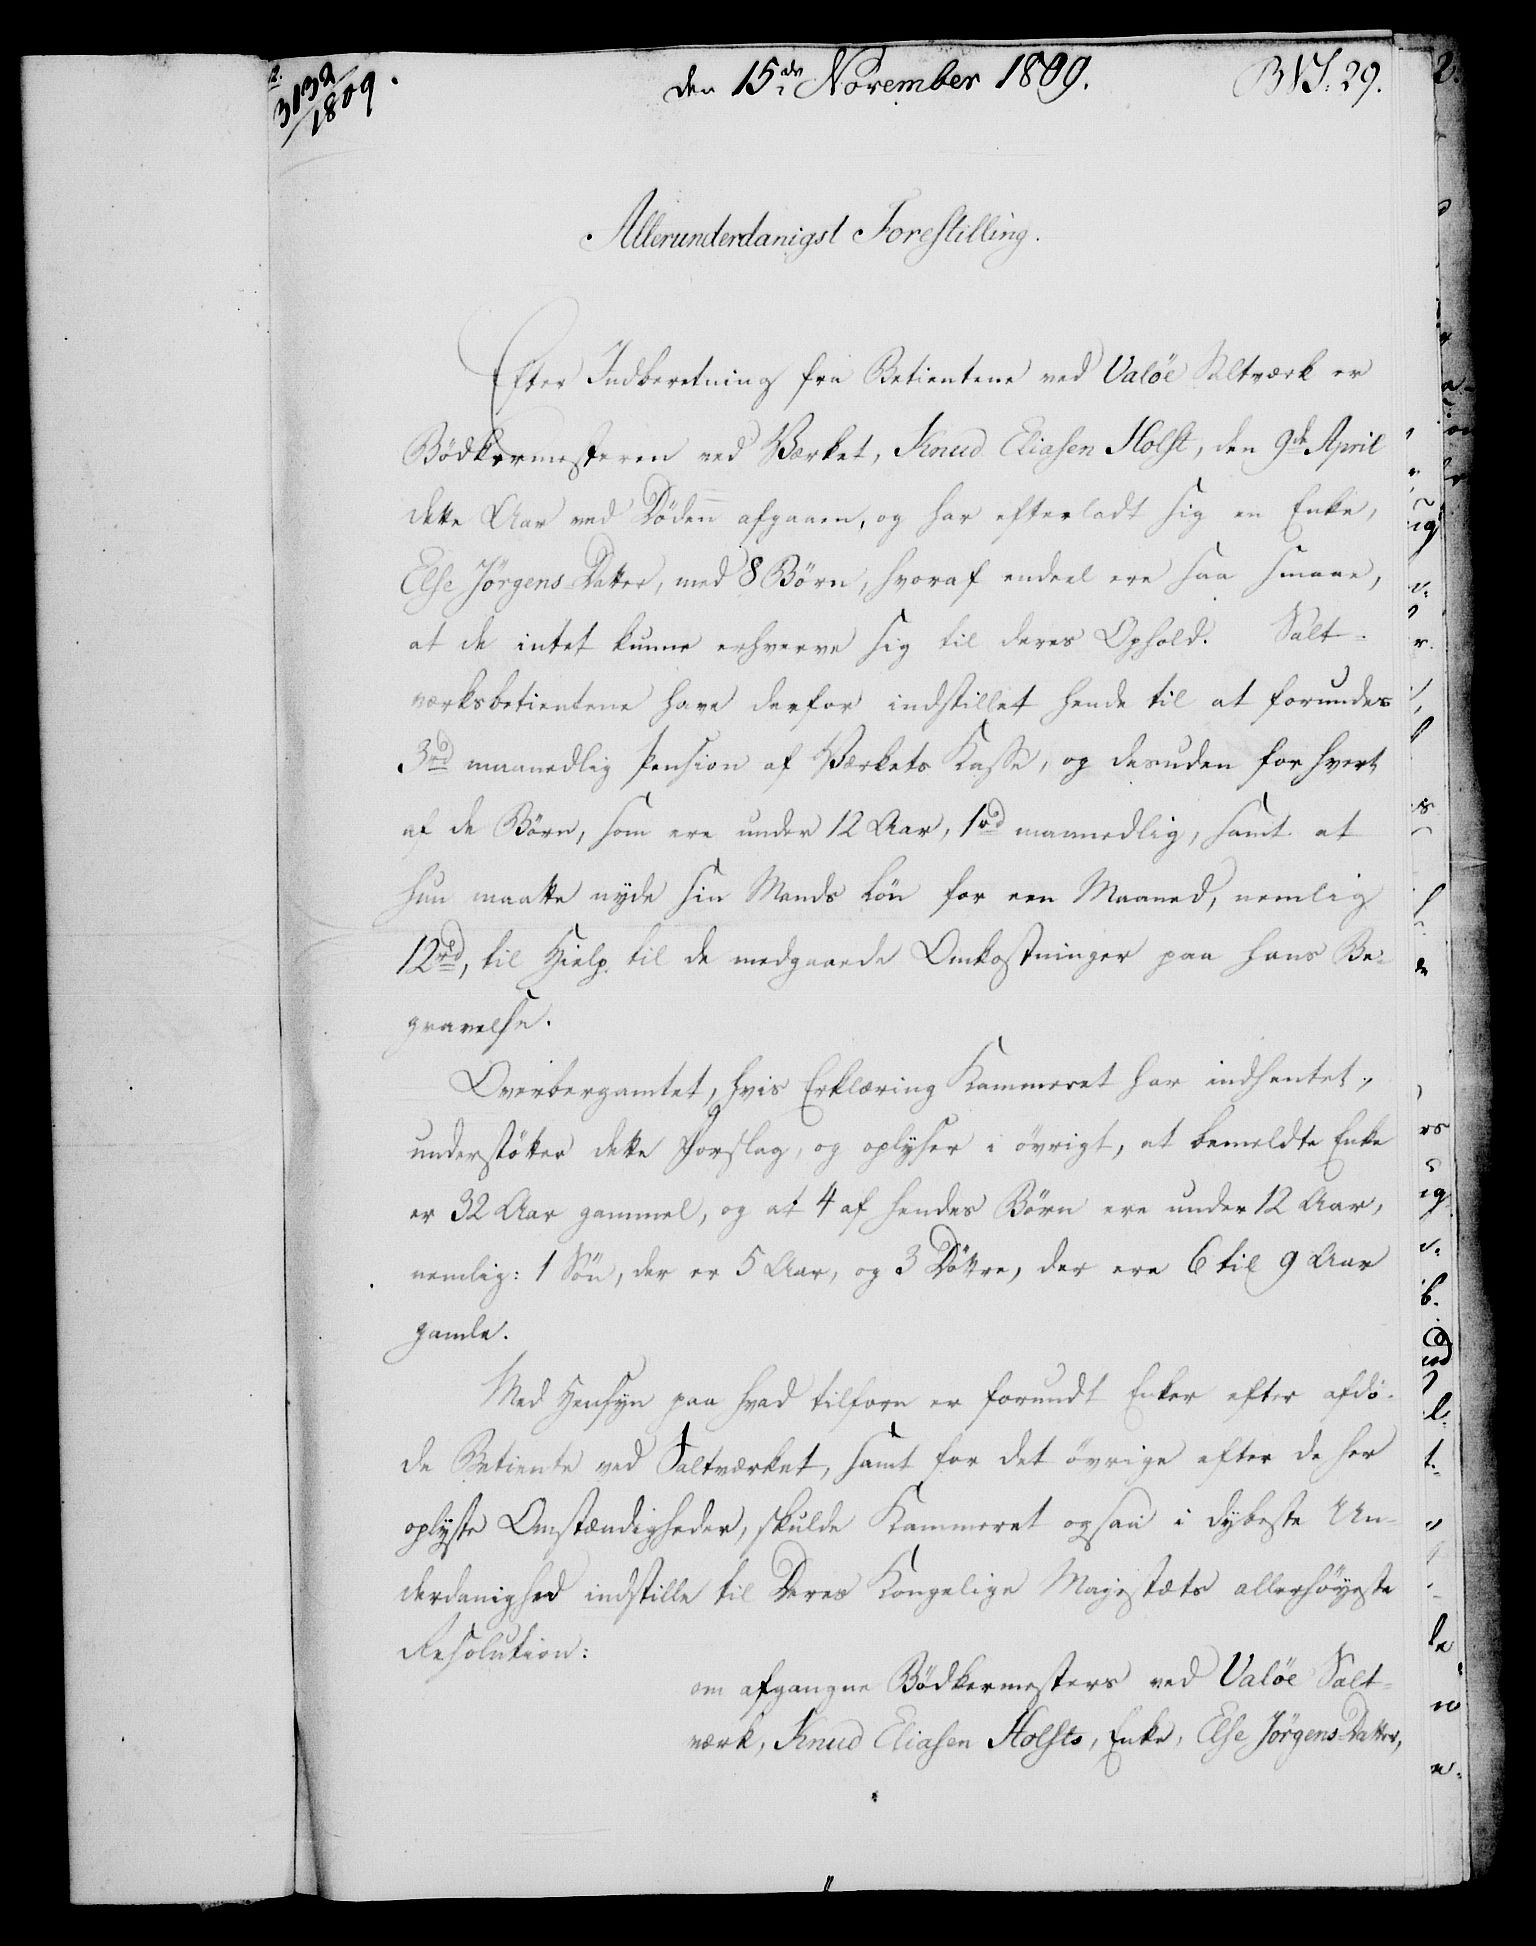 3132/1809.
den 15de November 1809.
B VS: 29.
Allerunderdanigst Forestilling.
Efter Indberetning fra Betientene ved Valöe Saltværk er
Bödkermesteren ved Værket, Knud Eliasen Holst, den 9de April
dette Aar ved Döden afgaaen, og har efterladt sig en Enke,
Else Jörgens Datter, med 8 Börn, hvoraf endeel ere saa smaae,
at de intet kunne erhverve sig til deres Ophold. Salt-
værksbetientene have derfor indstillet hende til at forundes
3rd maanedlig Pension af Værkets Kasse, og desuden for hvert
af de Börn, som ere under 12 Aar, 1rd maanedlig, samt at
hun maatte nyde sin Mands Lön for een Maaned, nemlig
12rd, til Hielp til de medgaaede Omkostninger paa hans Be-
gravelse.
Overbergamtet, hvis Erklæring Kammeret har indhentet,
understötter dette Forslag, og oplyser i övrigt, at bemeldte Enke
er 32 Aar gammel, og at 4 af hendes Börn ere under 12 Aar,
nemlig: 1 Sön, der er 5 Aar, og 3 Döttre, der ere 6 til 9 Aar
gamle.
Med Hensyn paa hvad tilforn er forundt Enker efter afdö-
de Betiente ved Saltværket, samt for det övrige efter de her
oplyste Omstændigheder, skulde Kammeret ogsaa i dybeste Un-
derdanighed indstille til Deres Kongelige Majestæts allerhöyeste
Resolution:
om afgangne Bödkermesters ved Valöe Salt-
værk, Knud Eliasen Holsts, Enke, Else Jörgens Datter,